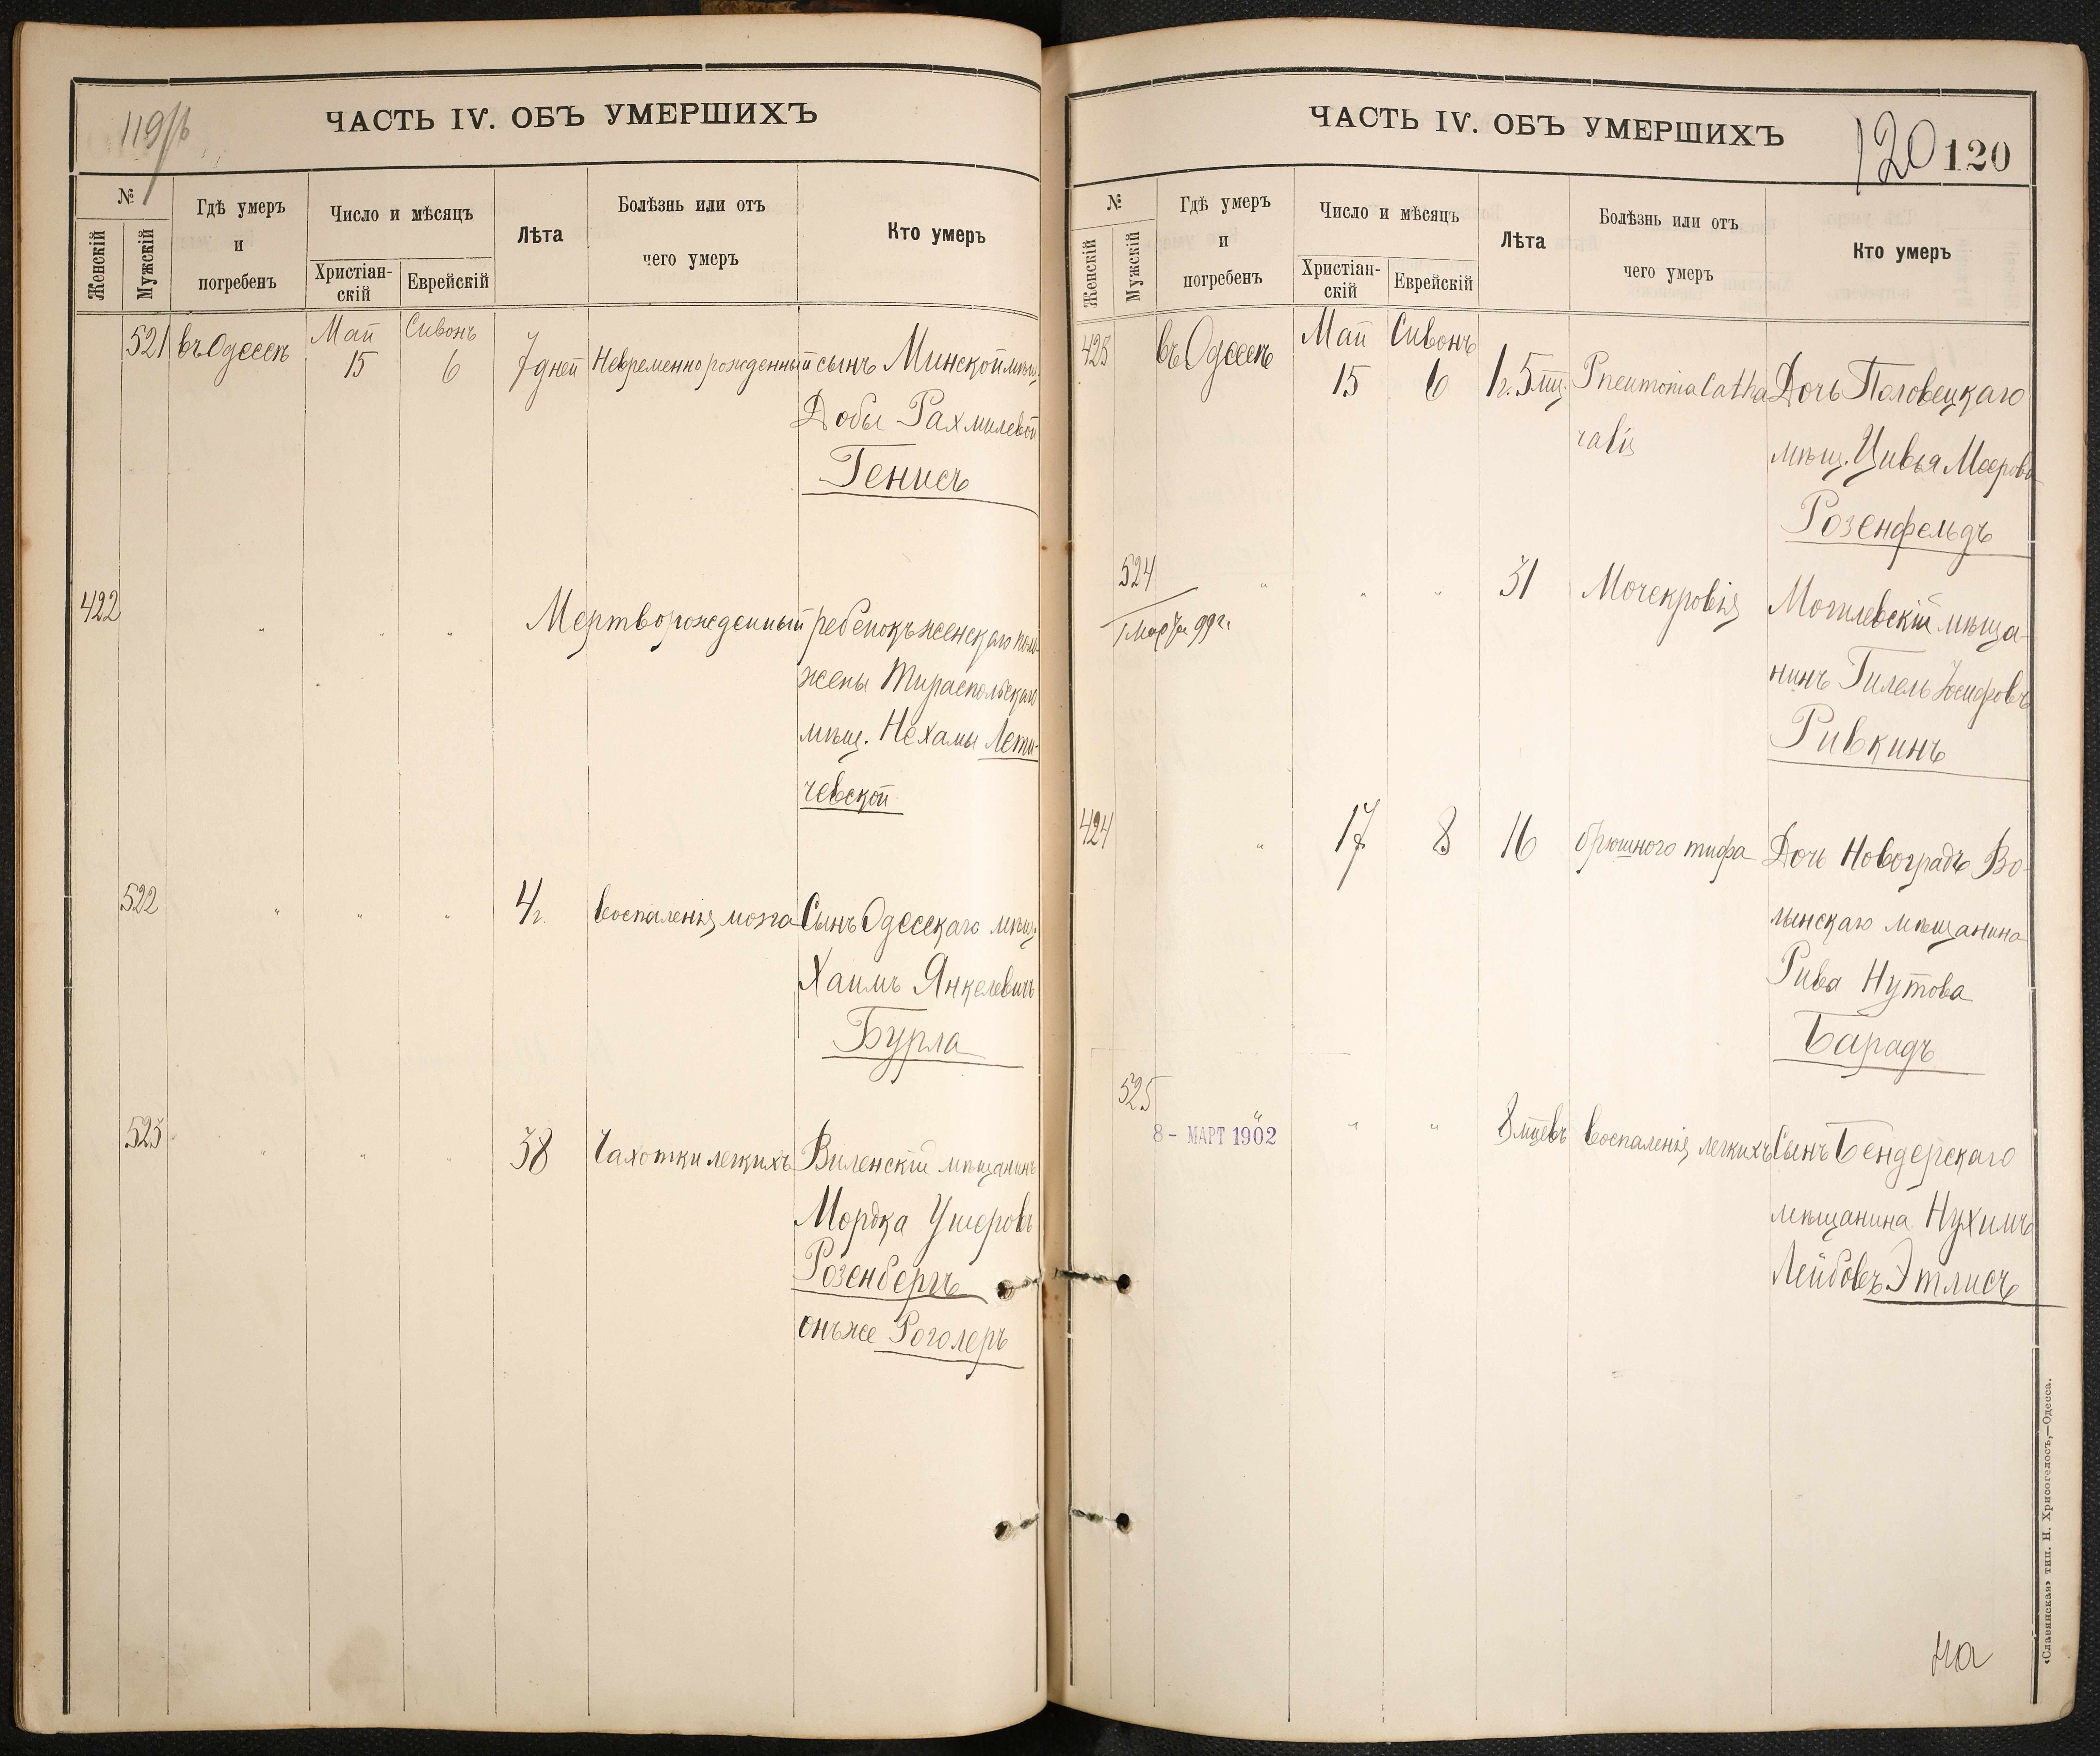 119/б
ЧАСТЬ IV. ОБЪ УМЕРШИХЪ
№
Женскій
Мужскій
Гдѣ умеръ
и
погребенъ
Число и мѣсяцъ
Христіан-
скій
Еврейскій
Лѣта
Болѣзнь или отъ
чего умеръ
Кто умеръ
521 въ Одессѣ Май 15 Сивонъ 6 7 дней Невременно рожденный сынъ Минской мѣщ.
Добы Рахмилевой
Генисъ
422 " " " Мертворожденный ребенокъ женскаго пола
жены Тираспольскаго
мѣщ. Нехамы Лети-
чевской
522 " " " 4 г. Воспаленія мозга Сынъ Одесскаго мѣщ.
Хаимъ Янкелевичъ
Бурла
523 " " " 38 Чахотки легкихъ Виленскій мѣщанинъ
Мордка Ушеровъ
Розенбергъ
онъ же Роголеръ
ЧАСТЬ IV. ОБЪ УМЕРШИХЪ
120 120
№
Женскій
Мужскій
Гдѣ умеръ
и
погребенъ
Число и мѣсяцъ
Христіан-
скій
Еврейскій
Лѣта
Болѣзнь или отъ
чего умеръ
Кто умеръ
423 въ Одессѣ Май 15 Сивонъ 6 1 г. 5 мц. Pneumonia Catha Дочь Половецкаго
ralis мѣщ. Цивья Меерова
Розенфельдъ
524 " " " 31 Мочекровія Могилевскій мѣща-
1 Марта 99 г. нинъ Гилель Іосифовъ
Ривкинъ
424 " 17 8 16 брюшного тифа Дочь Новоградъ Во-
лынскаго мѣщанина
Рива Нутова
Барадъ
525 " " " 8 мцевъ Воспаленія легкихъ Сынъ Бендерскаго
8 - МАРТ 1902
мѣщанина Нухимъ
Лейбовъ Этлисъ
«Славянская» тип. Н. Хрисогелосъ,—Одесса.